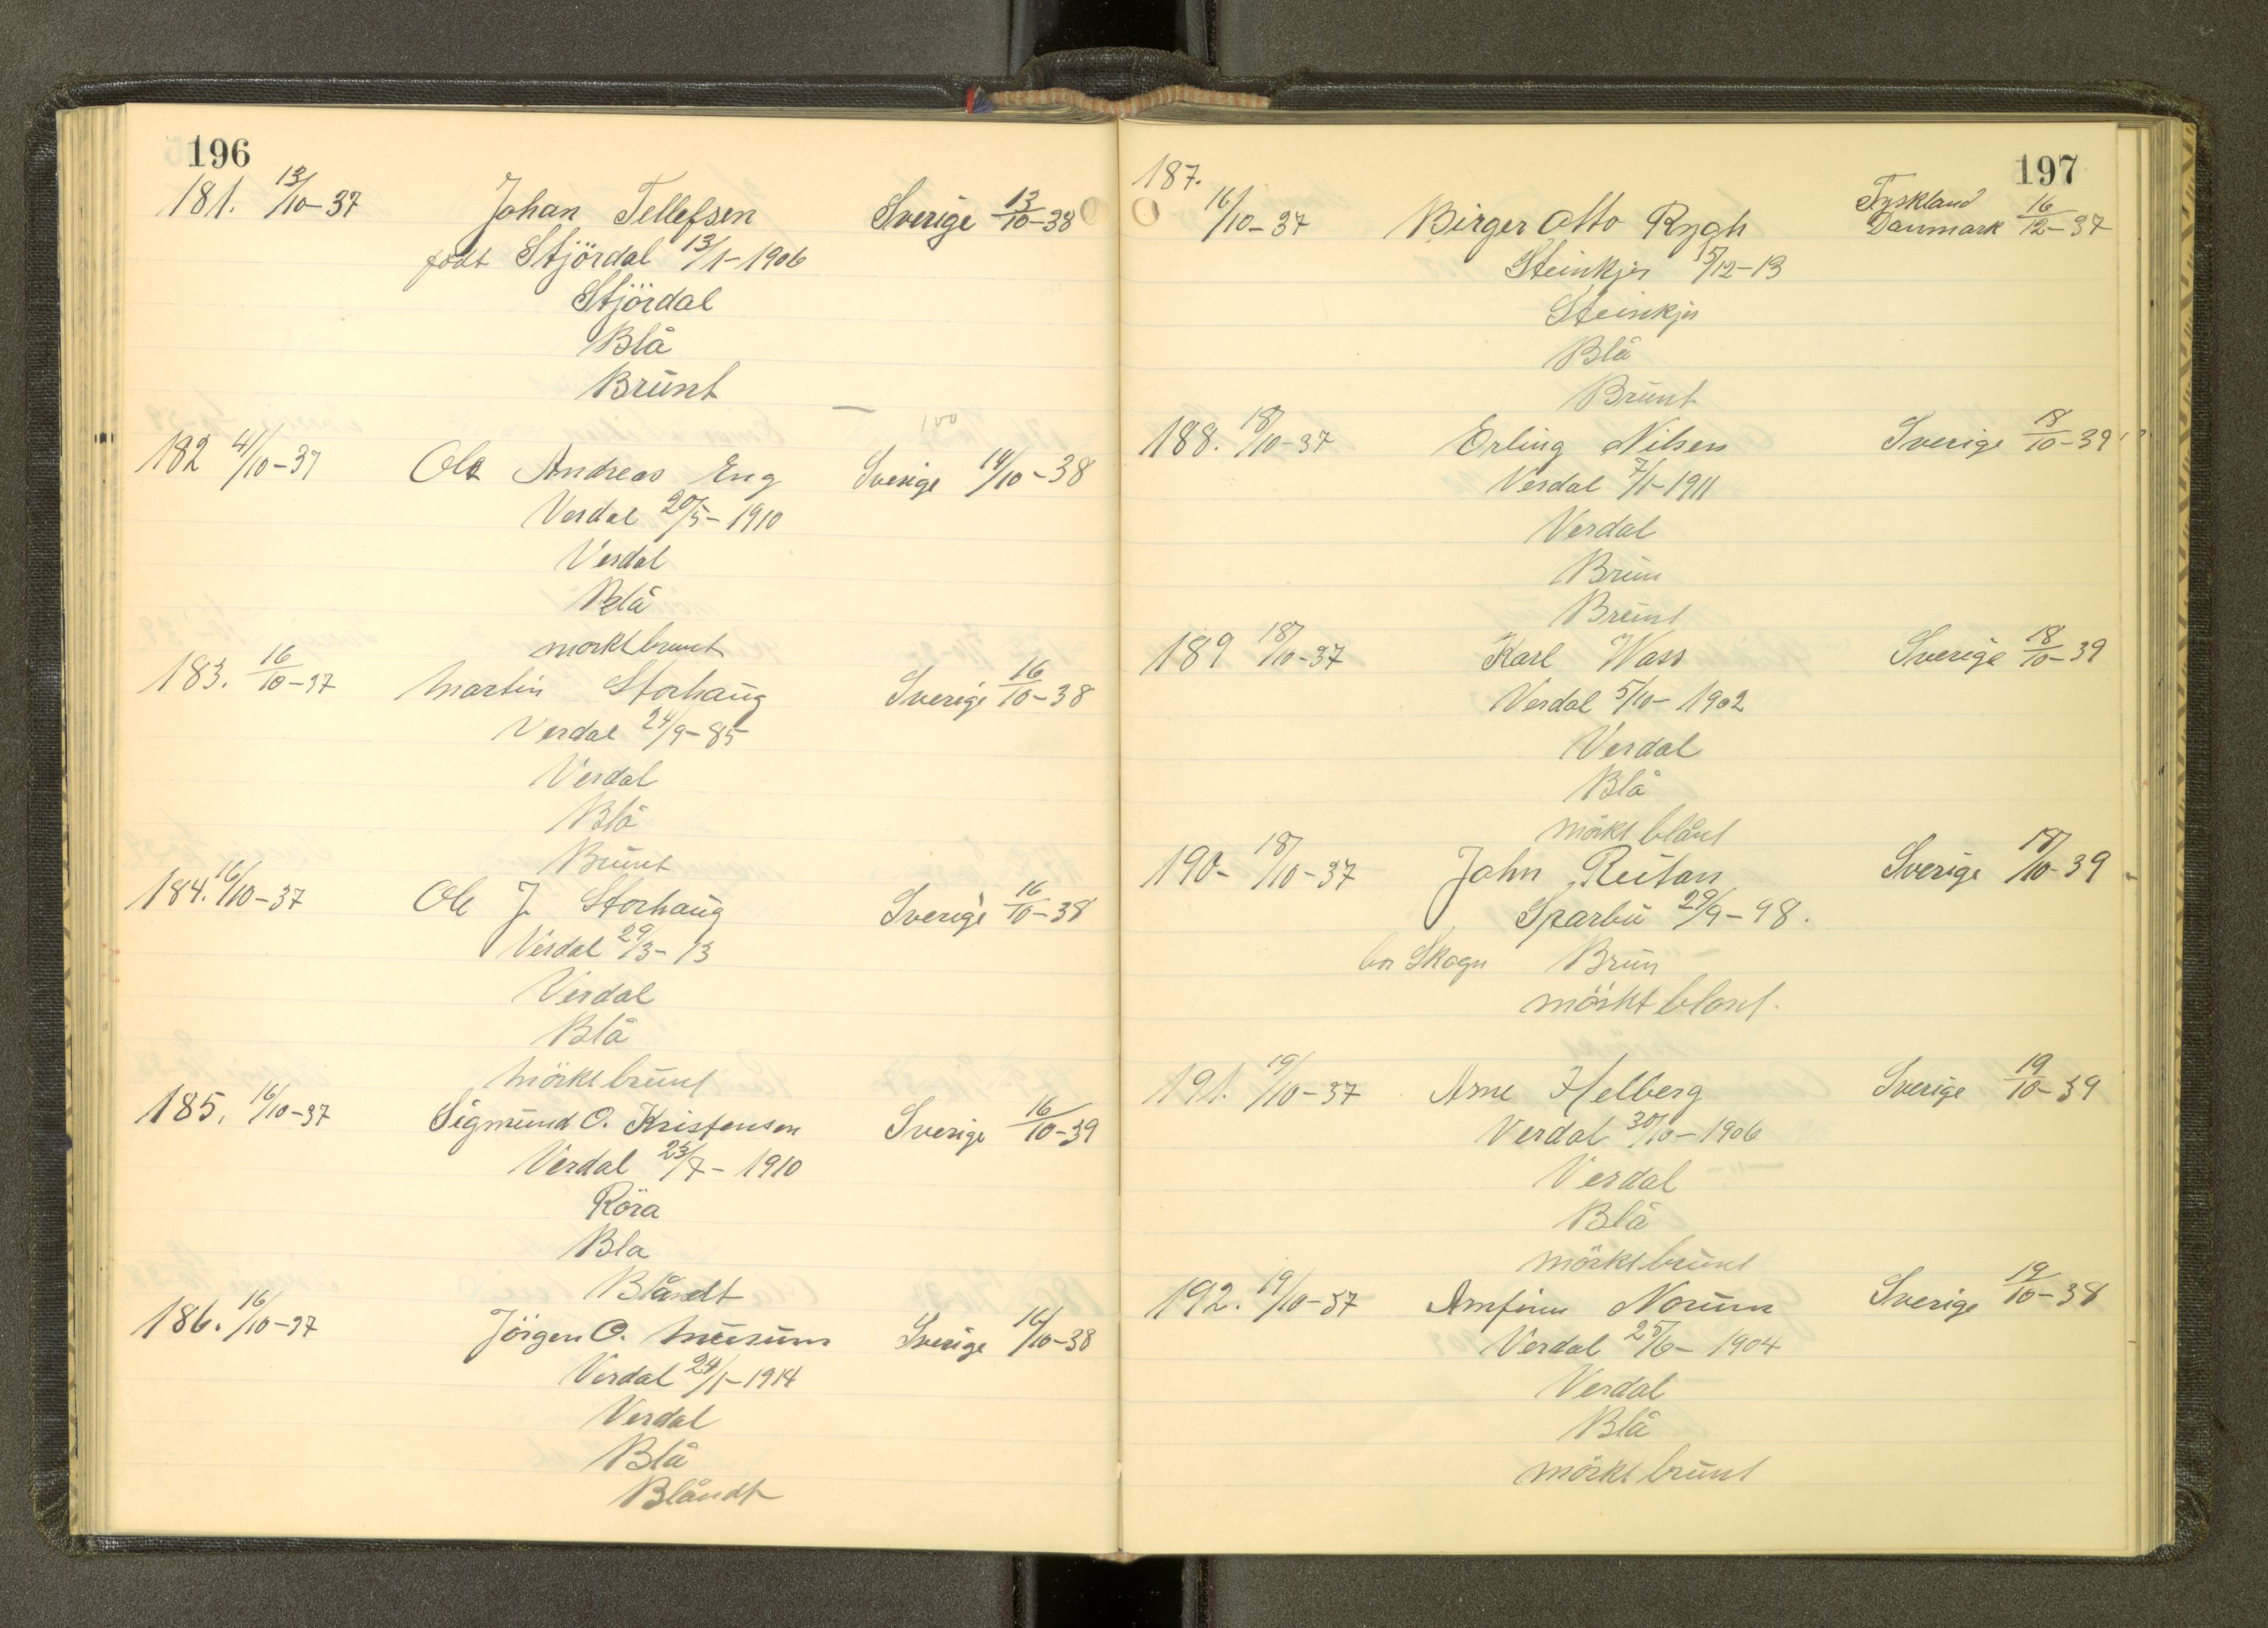 196
181. 13/10-37 Johan Tellefsen Sverige 13/10-38
født Stjördal 13/1-1906
Stjördal
Blå
Brunt
100
182 41/10-37 Ola Andreas Eng Sverige 14/10-38
Verdal 20/5-1910
Verdal
Blå
mörkt brunt
183. 16/10-37 Martin Storhaug Sverige 16/10-38
Verdal 24/9-85
Verdal
Blå
Brunt
184. 16/10-37 Ole J Storhaug Sverige 16/10-38
Verdal 29/3-13
Verdal
Blå
Mörkt brunt
185. 16/10-37 Sigmund O. Kristensen Sverige 16/10-39
Verdal 23/7-1910
Röra
Bla
Blåndt
186. 16/10-37 Jörgen O. Musum Sverige 16/10-38
Verdal 24/1-1914
Verdal
Blå
Blåndt
197
187.
16/10-37 Birger Otto Rygh Tyskland Danmark 16/12-37
Steinkjer 15/12-13
Steinkjer
Blå
Brunt
188. 18/10-37 Erling Nilsen Sverige 18/10-39
Verdal 7/1-1911
Verdal
Brun
Brunt
189 18/10-37 Karl Wass Sverige 18/10-39
Verdal 5/10-1902
Verdal
Blå
mörkt blånt
190- 18/10-37 John Reitan Sverige 18/10-39
Sparbu 29/9-98.
bor Skogn Brun
mörkt blont.
191. 19/10-37 Arne Helberg Sverige 19/10-39
Verdal 30/10-1906
Verdal
Blå
mörkt brunt
192. 19/10-37 Arnfinn Norum Sverige 19/10-38
Verdal 25/6-1904
Verdal
Blå
mörkt brunt